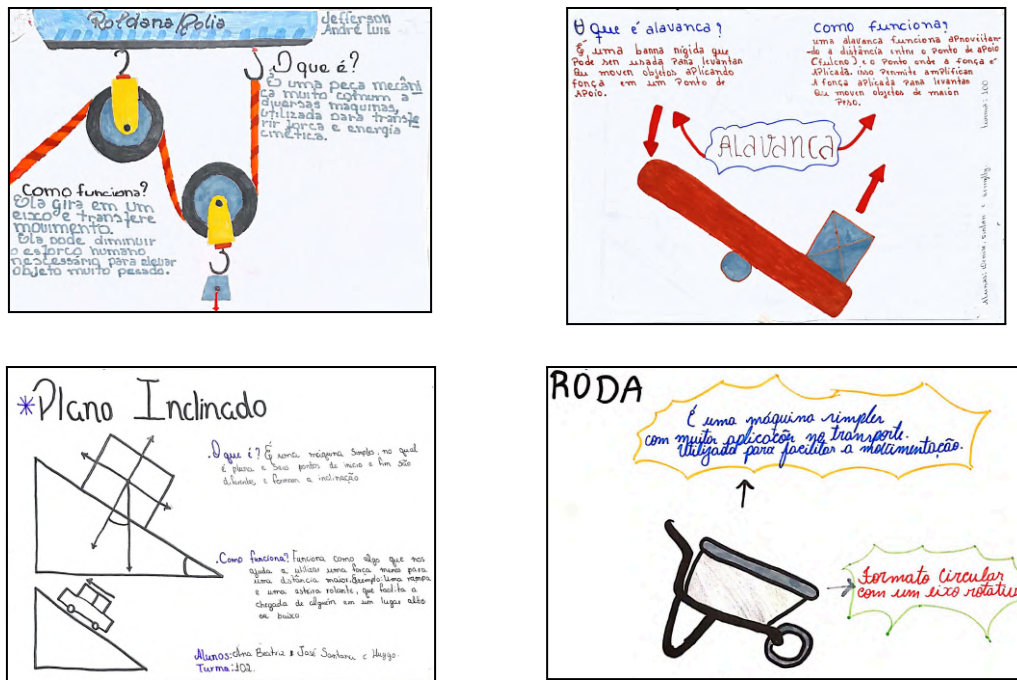 Roldana/Polia
Jefferson
André Luis
O que é?
É uma peça mecâni
ca muito comum a
diversas máquinas,
utilizada para transfe
rir força e energia
cinética.
Como funciona?
Ela gira em um
eixo e transfere
movimento.
Ela pode diminuir
o esforço humano
nescessário para elevar
objeto muito pesado.
O que é alavanca?
É uma barra rígida que
Pode ser usada Para levantar
Ou mover objetos aplicando
força em um Ponto de
APoio.
Como funciona?
uma alavanca funciona aproveitan-
do a distância entre o Ponto de apoio
(fulcro) e o Ponto onde a força é
APlicada. isso Permite amplificar
A força aplicada Para levantar
Ou mover objetos de maior
Peso.
ALAVANCA
*Plano Inclinado
.O que é? É uma máquina Simples, no qual
é plana e Seus pontos de início e fim são
diferentes, e formam a inclinação
.Como funciona? Funciona como algo que nos
ajuda a utilizar uma força menor para
uma distância maior. Exemplo: Uma rampa
e uma esteira rolante, que facilita a
chegada de alguém em um lugar alto
ou baixo
Alunos: Ana Beatriz, José Santana e Huggo
Turma: 102.
RODA
É uma máquina simples
com muitas aplicações no transporte.
Utilizada para facilitar a movimentação.
Formato Circular
com um eixo rotativo